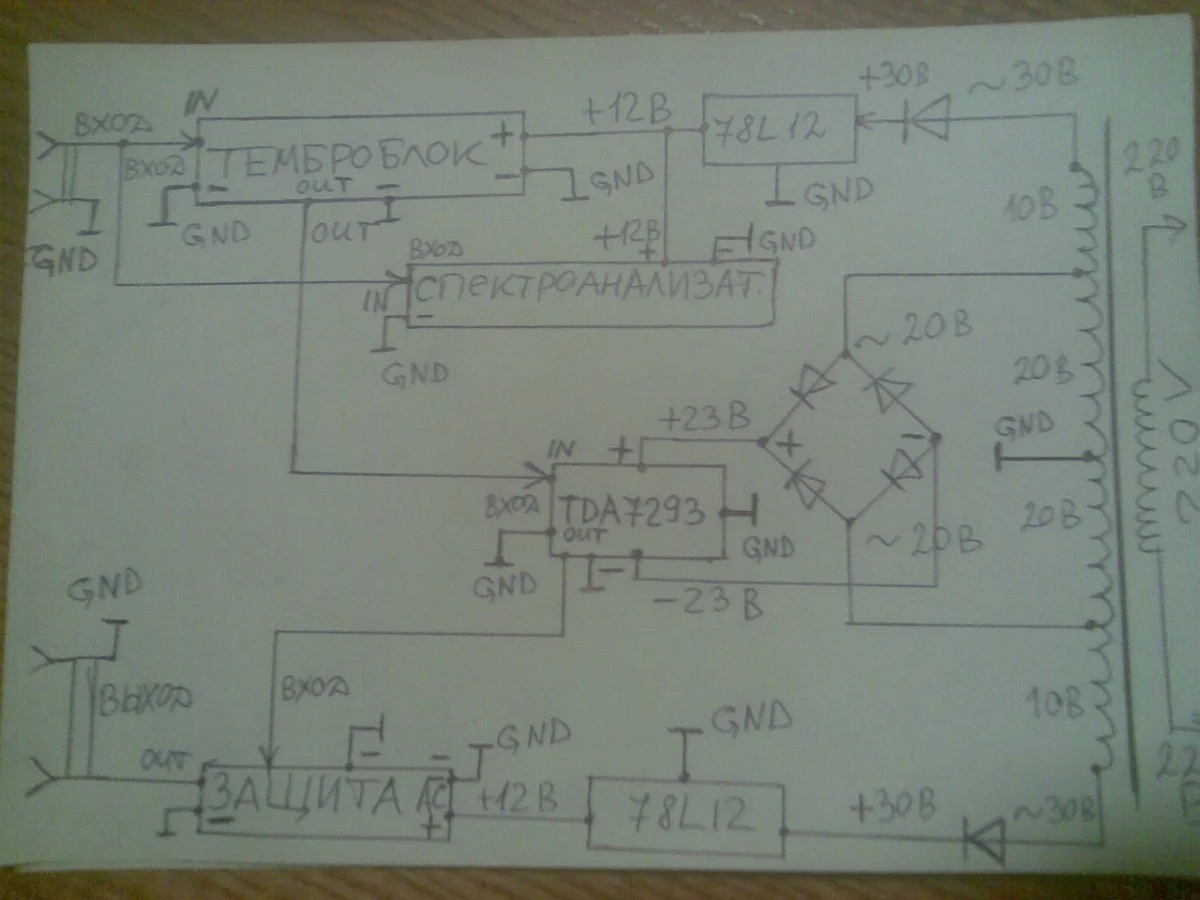 +30В
~30В
IN
ВХОД
+12В
78L12
220
В
ВХОД
ТЕМБРОБЛОК
+
-
-
OUT
-
GND
GND
GND
10В
GND
OUT
ВХОД
+12В
+
-
GND
IN
СПЕКТРОАНАЛИЗАТ.
-
GND
~20В
20В
+23В
GND
+
-
IN
+
ВХОД
TDA7293
OUT
220V
20В
GND
~20В
GND
-
-23В
GND
ВХОД
ВЫХОД
10В
GND
OUT
-
-
GND
ЗАЩИТА АС
+12В
78L12
+30В
~30В
-
+
22